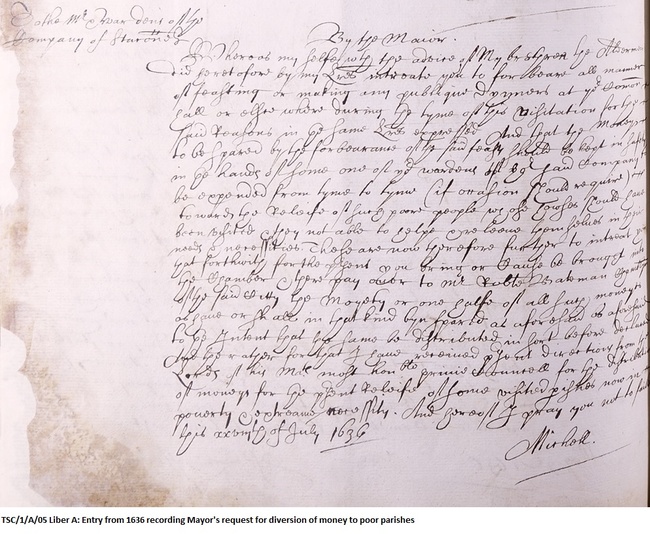 To the Mr & wardens of the
Company of Staconers
By the Maior.
Whereas my selfe with the advice of My brethren the Aldermen
did heretofore by my Lres intreate you to forbeare all manner
of feasting or making any publique dynners at yor Comon
hall or elsewhere during the tyme of this visitation for the
said Reasons in the same Lres expressed And that the moneys
to be spared by the forbearance of the said feasts should be kept
in the hands of some one of the wardens of the said Company to
be expended from tyme to tyme (if occasion should require)
towards the Releife of such poore people whose howses should have
been visited they not able to helpe & releeve themselves in their
needs & necessities. These are now therefore further to intreat you
that forthwith for the psent you bring or cause be brought into
the Chamber & there pay over to Mr Robte Bateman
of the said Citty the Moyety or one halfe of all such moneys
as have or shall in that kind byn spared as aforesaid
to the Intent that the same be distributed in sort before declared
And the rather for that I have received direccions from the
Lords of his Mats most honble privie Councell for the
of moneys for the psent Releife of some visited pishes now in
poverty & extreame necessity. And hereof I pray you not to faile
this xxvth of July 1636
Michell.
TSC/1/A/05 Liber A: Entry from 1636 recording Mayor's request for diversion of money to poor parishes